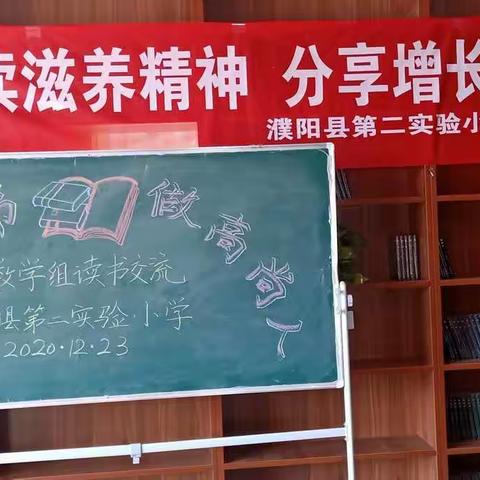 读滋养精神 分享增长
濮阳县第二实验小
做高尚
数学组读书交流
县第二实验小学
2020.12.23